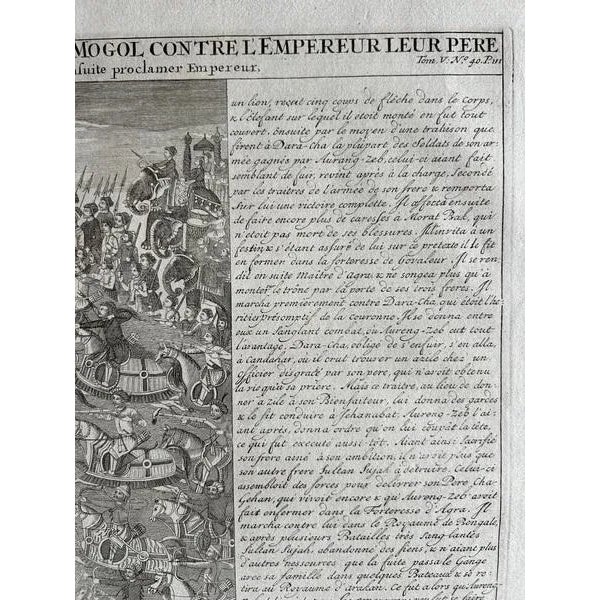 MOGOL CONTRE L'EMPEREUR LEUR PERE
suite proclamer Empereur.
Tom. V. Nº 40. Pa
un lion, reçoit cinq coups de flêche dans le corps,
& l'Elefant sur lequel il etoit monté en fut tout
couvert. Ensuite par le moyen d'une trahison que
firent à Dara-cha la plûpart des Soldats de son ar-
mée gagnés par Aurang-zeb, celui-ci aiant fait
semblant de fuir, revint aprés à la charge, Secondé
par les traitres de l'armée de son frere & remporta
sur lui une victoire complette. Il affecta ensuite
de faire encore plus de caresses à Morat Bak, qui
n'etoit pas mort de ses blessures. Il l'invita à un
festin & s'étant assuré de lui sur ce pretexte il le fit
enfermer dans la forteresse de Govaleur. Il se ren-
dit en suite Maître d'agra & ne songea plus qu'à
monter le trône par la porte de ses trois frères. Il
marcha premierement contre Dara-Cha, qui étoit l'he-
ritier présomptif de la Couronne. Il se donna entre
eux un Sanglant combat, ou Aureng-zeb eut tout
l'avantage, Dara-cha, obligé de s'enfuir, s'en alla,
à Candahar, où il crut trouver un azile chez un
Officier disgratié par son pere, qui n'avoit obtenu
la vie qu'à sa priere. Mais ce traitre, au lieu de don-
ner azile à son Bienfaiteur, lui donna des gardes
& le fit conduire à Jehanabat. Aureng-zeb l'ai-
ant apris, donna ordre qu'on lui coupât la tête,
ce qui fut executé aussi-tôt. Aiant ainsi Sacrifié
son frere ainé à son ambition, il n'avoit plus que
son autre frere Sultan Sujah à détruire. Celui-ci
assembloit des forces pour delivrer son Pere Cha-
Gehan, qui vivoit encore & qu'Aureng-zeb avoit
fait enfermer dans la Forteresse d'Agra. Il
marcha contre lui dans le Royaume de Bengale,
& après plusieurs Batailles très Sanglantes
Sultan Sujah, abandonné des siens, & n'aiant plus
d'autres ressources que la fuite passa le Gange
avec sa famille dans quelques Bateaux & se re-
tira au Royaume d'arakan. Ce fut alors qu'Aureng-